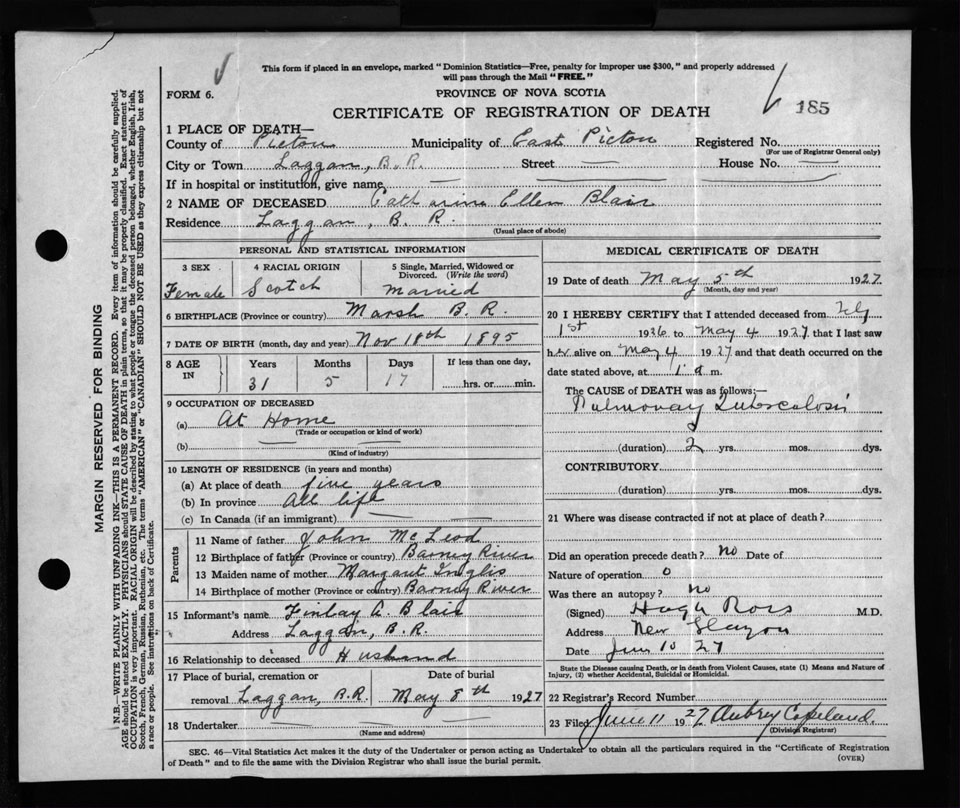 This form if placed in an envelope, marked "Dominion Statistics—Free, penalty for improper use $300," and properly addressed
will pass through the Mail "FREE."
FORM 6.
PROVINCE OF NOVA SCOTIA
CERTIFICATE OF REGISTRATION OF DEATH
185
1 PLACE OF DEATH—
County of Pictou Municipality of East Pictou Registered No.
(For use of Registrar General only)
City or Town Laggan, B.R. Street — House No. —
If in hospital or institution, give name —
2 NAME OF DECEASED Catharine Ellen Blair
Residence Laggan, B. R.
(Usual place of abode)
PERSONAL AND STATISTICAL INFORMATION
3 SEX 4 RACIAL ORIGIN 5 Single, Married, Widowed or
Divorced. (Write the word)
Female Scotch Married
6 BIRTHPLACE (Province or country) Marsh B. R.
7 DATE OF BIRTH (month, day and year) Nov 18th 1895
8 AGE IN Years Months Days If less than one day,
31 5 17 hrs. or min.
9 OCCUPATION OF DECEASED
(a) At Home
(Trade or occupation or kind of work)
(b) —
(Kind of industry)
10 LENGTH OF RESIDENCE (in years and months)
(a) At place of death five years
(b) In province All life
(c) In Canada (if an immigrant) —
Parents
11 Name of father John McLeod
12 Birthplace of father (Province or country) Barney River
13 Maiden name of mother Margaret Inglis
14 Birthplace of mother (Province or country) Barney River
15 Informant's name Finlay A. Blair
Address Laggan, B.R.
16 Relationship to deceased Husband
17 Place of burial, cremation or Date of burial
removal Laggan, B.R. May 8th 1927
18 Undertaker —
(Name and address)
MEDICAL CERTIFICATE OF DEATH
19 Date of death May 5th 1927
(Month, day and year)
20 I HEREBY CERTIFY that I attended deceased from
1st 1926 to May 4 1927 that I last saw
her alive on May 4 1927 and that death occurred on the
date stated above, at 1 a m.
The CAUSE OF DEATH was as follows:—
Pulmonary Tuberculosis
(duration) 2 yrs. mos. dys.
CONTRIBUTORY
(duration) yrs. mos. dys.
21 Where was disease contracted if not at place of death?
Did an operation precede death? no Date of
Nature of operation 0
Was there an autopsy? no
(Signed) Hugh Ross M.D.
Address New Glasgow
Date June 10 27
State the Disease causing Death, or in death from Violent Causes, state (1) Means and Nature of
Injury, (2) whether Accidental, Suicidal or Homicidal.
22 Registrar's Record Number
23 Filed June 11 1927 Aubrey Copeland.
(Division Registrar)
SEC. 46—Vital Statistics Act makes it the duty of the Undertaker or person acting as Undertaker to obtain all the particulars required in the "Certificate of Registration
of Death" and to file the same with the Division Registrar who shall issue the burial permit.
(OVER)
MARGIN RESERVED FOR BINDING
N.B.—WRITE PLAINLY WITH UNFADING INK—THIS IS A PERMANENT RECORD. Every item of information should be carefully supplied.
AGE should be stated EXACTLY. PHYSICIANS should STATE CAUSE OF DEATH in plain terms, so that it may be properly classified. Exact statement of
OCCUPATION is very important. RACIAL ORIGIN will be described by stating to what people or tongue the deceased person belonged, whether English, Irish,
Scotch, French, German, Russian, Ruthenian, etc. The terms "AMERICAN" or "CANADIAN" SHOULD NOT BE USED as they express citizenship but not
a race or people. See instructions on back of Certificate.